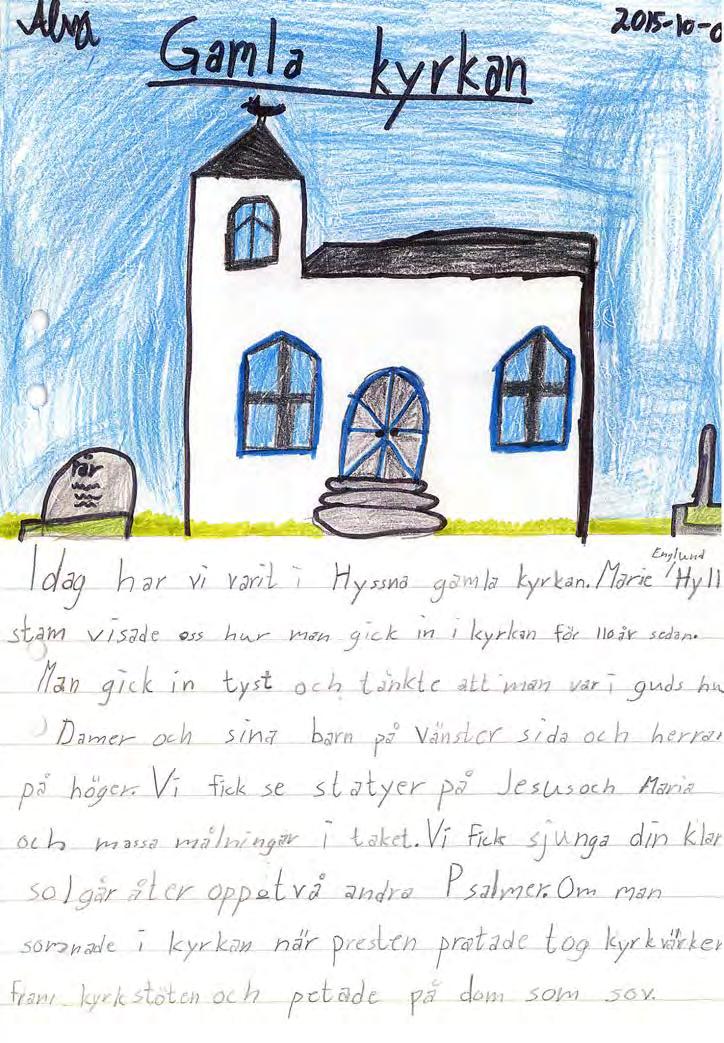 Alva 2015-10-0
Gamla kyrkan
här
Englund
Idag har vi varit i Hyssna gamla kyrkan. Marie Hyll
stam visade oss hur man gick in i kyrkan för 110 år sedan.
Man gick in tyst och tänkte att man var i guds hu
Damer och sina barn på vänster sida och herrar
på höger. Vi fick se statyer på Jesus och Maria
och massa målningar i taket. Vi fick sjunga din klar
sol går åter opp två andra Psalmer. Om man
somnade i kyrkan när presten pratade tog kyrkvärker
fram kyrkstöten och petade på dom som sov.